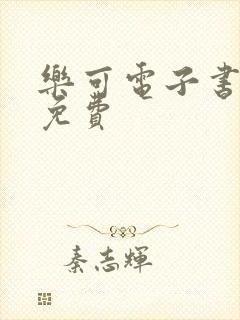 樂可電子書
免費
秦志輝